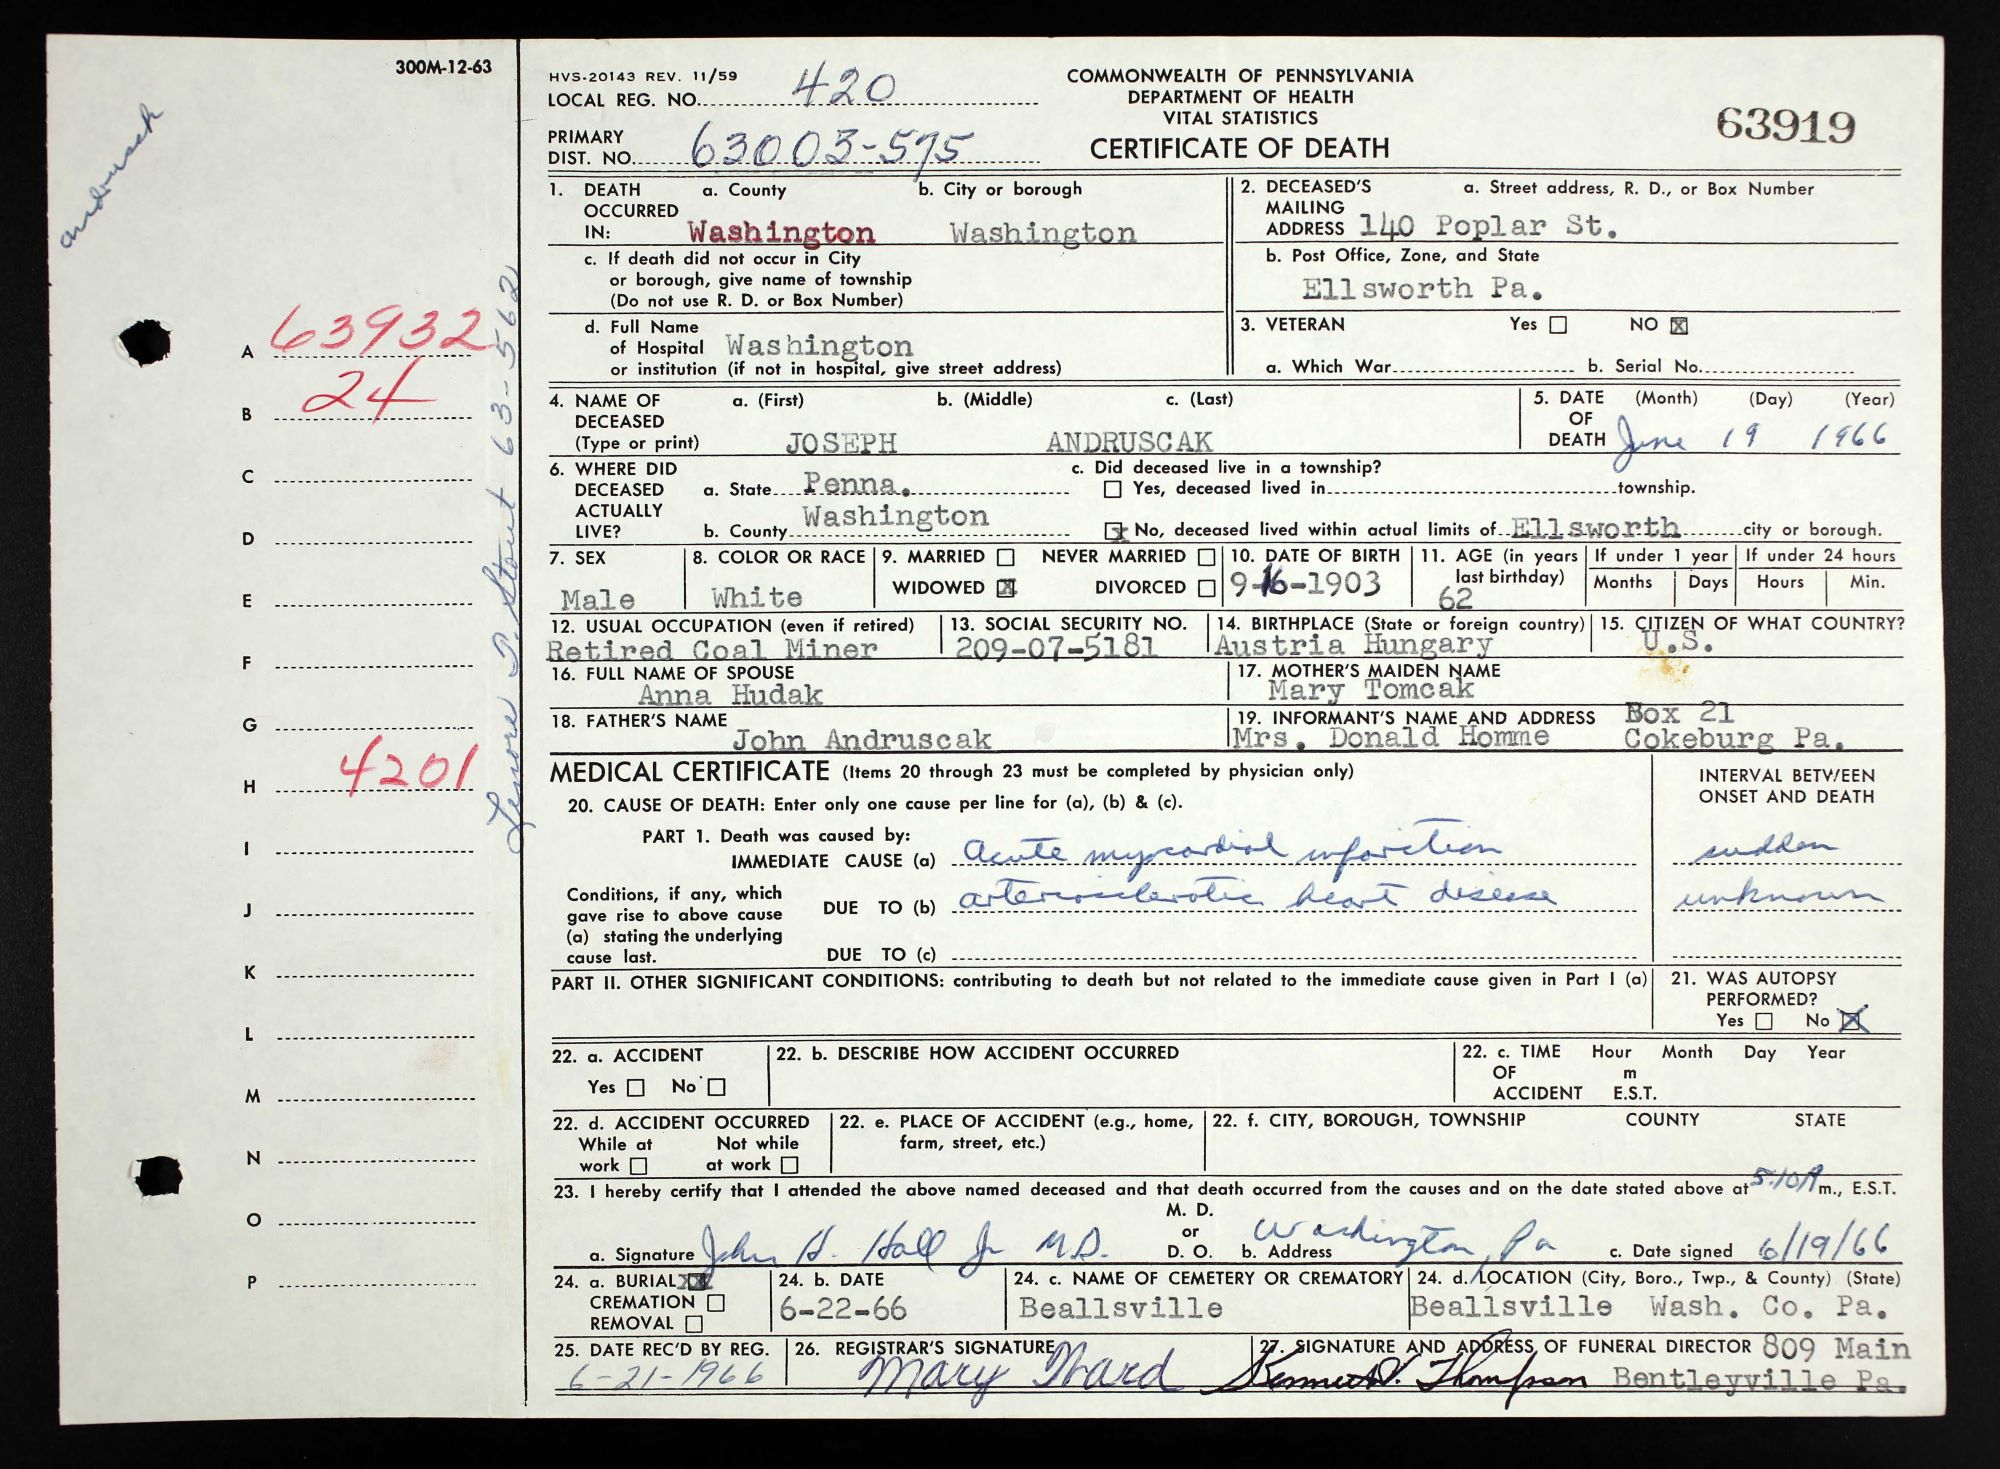 300M-12-63
Andruscak
A 63932
B 24
C
D
E
F
G
H 4201
I
J
K
L
M
N
O
P
Lenore P. Stout 63-562
HVS-20143 REV. 11/59
LOCAL REG. NO. 420
PRIMARY
DIST. NO. 63003-575
COMMONWEALTH OF PENNSYLVANIA
DEPARTMENT OF HEALTH
VITAL STATISTICS
CERTIFICATE OF DEATH
63919
1. DEATH OCCURRED IN: a. County Washington b. City or borough Washington
c. If death did not occur in City
or borough, give name of township
(Do not use R. D. or Box Number)
d. Full Name
of Hospital Washington
or institution (if not in hospital, give street address)
2. DECEASED'S MAILING ADDRESS a. Street address, R. D., or Box Number
140 Poplar St.
b. Post Office, Zone, and State
Ellsworth Pa.
3. VETERAN Yes ☐ NO ☒
a. Which War b. Serial No.
4. NAME OF DECEASED (Type or print) a. (First) b. (Middle) c. (Last)
JOSEPH ANDRUSCAK
5. DATE OF DEATH (Month) (Day) (Year)
June 19 1966
6. WHERE DID DECEASED ACTUALLY LIVE? a. State Penna.
b. County Washington
c. Did deceased live in a township?
☐ Yes, deceased lived in township.
☒ No, deceased lived within actual limits of Ellsworth city or borough.
7. SEX
Male
8. COLOR OR RACE
White
9. MARRIED ☐ NEVER MARRIED ☐
WIDOWED ☒ DIVORCED ☐
10. DATE OF BIRTH
9-16-1903
11. AGE (in years last birthday)
62
If under 1 year
Months Days
If under 24 hours
Hours Min.
12. USUAL OCCUPATION (even if retired)
Retired Coal Miner
13. SOCIAL SECURITY NO.
209-07-5181
14. BIRTHPLACE (State or foreign country)
Austria Hungary
15. CITIZEN OF WHAT COUNTRY?
U.S.
16. FULL NAME OF SPOUSE
Anna Hudak
17. MOTHER'S MAIDEN NAME
Mary Tomcak
18. FATHER'S NAME
John Andruscak
19. INFORMANT'S NAME AND ADDRESS Box 21
Mrs. Donald Homme Cokeburg Pa.
MEDICAL CERTIFICATE (Items 20 through 23 must be completed by physician only)
20. CAUSE OF DEATH: Enter only one cause per line for (a), (b) & (c).
INTERVAL BETWEEN
ONSET AND DEATH
PART 1. Death was caused by:
IMMEDIATE CAUSE (a) Acute myocardial infarction sudden
Conditions, if any, which
gave rise to above cause
(a) stating the underlying
cause last.
DUE TO (b) arteriosclerotic heart disease unknown
DUE TO (c)
PART II. OTHER SIGNIFICANT CONDITIONS: contributing to death but not related to the immediate cause given in Part I (a)
21. WAS AUTOPSY
PERFORMED?
Yes ☐ No ☒
22. a. ACCIDENT
Yes ☐ No ☐
22. b. DESCRIBE HOW ACCIDENT OCCURRED
22. c. TIME OF ACCIDENT Hour Month Day Year
m
E.S.T.
22. d. ACCIDENT OCCURRED
While at work ☐ Not while at work ☐
22. e. PLACE OF ACCIDENT (e.g., home,
farm, street, etc.)
22. f. CITY, BOROUGH, TOWNSHIP COUNTY STATE
23. I hereby certify that I attended the above named deceased and that death occurred from the causes and on the date stated above at 5:10 A m., E.S.T.
a. Signature John H. Hall Jr M.D. M. D. or D. O. b. Address Washington, Pa c. Date signed 6/19/66
24. a. BURIAL ☒
CREMATION ☐
REMOVAL ☐
24. b. DATE
6-22-66
24. c. NAME OF CEMETERY OR CREMATORY
Beallsville
24. d. LOCATION (City, Boro., Twp., & County) (State)
Beallsville Wash. Co. Pa.
25. DATE REC'D BY REG.
6-21-1966
26. REGISTRAR'S SIGNATURE
Mary Ward
27. SIGNATURE AND ADDRESS OF FUNERAL DIRECTOR 809 Main
Kenneth V. Thompson Bentleyville Pa.